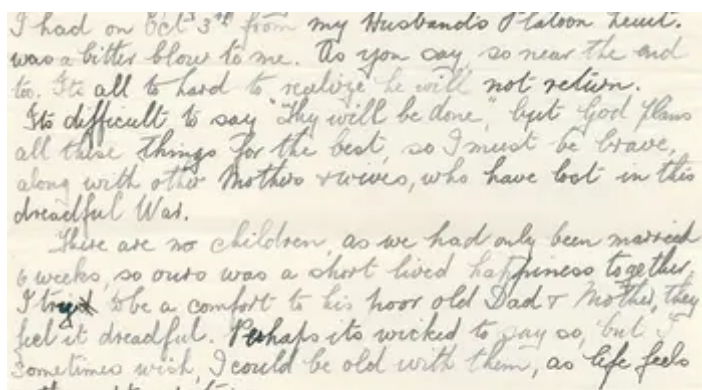 I had on Oct 3rd from my Husband's Platoon Lieut.
was a bitter blow to me. As you say, so near the end
too. Its all to hard to realize he will not return.
Its difficult to say "Thy will be done", but God plans
all these things for the best, so I must be brave,
along with other Mothers & wives, who have lost in this
dreadful War.
There are no children, as we had only been married
6 weeks, so ours was a short lived happiness together,
I try to be a comfort to his poor old Dad & Mother, they
feel it dreadful. Perhaps its wicked to say so, but I
sometimes wish, I could be old with them, as life feels